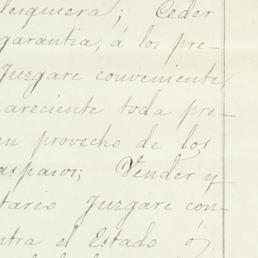 leiquiera; Ceder
garantia, á los pre-
Juzgare conveniente,
areciente toda pre-
en provecho de los
aspasos; Vender y
tario Juzgare con-
ntra el Estado ó